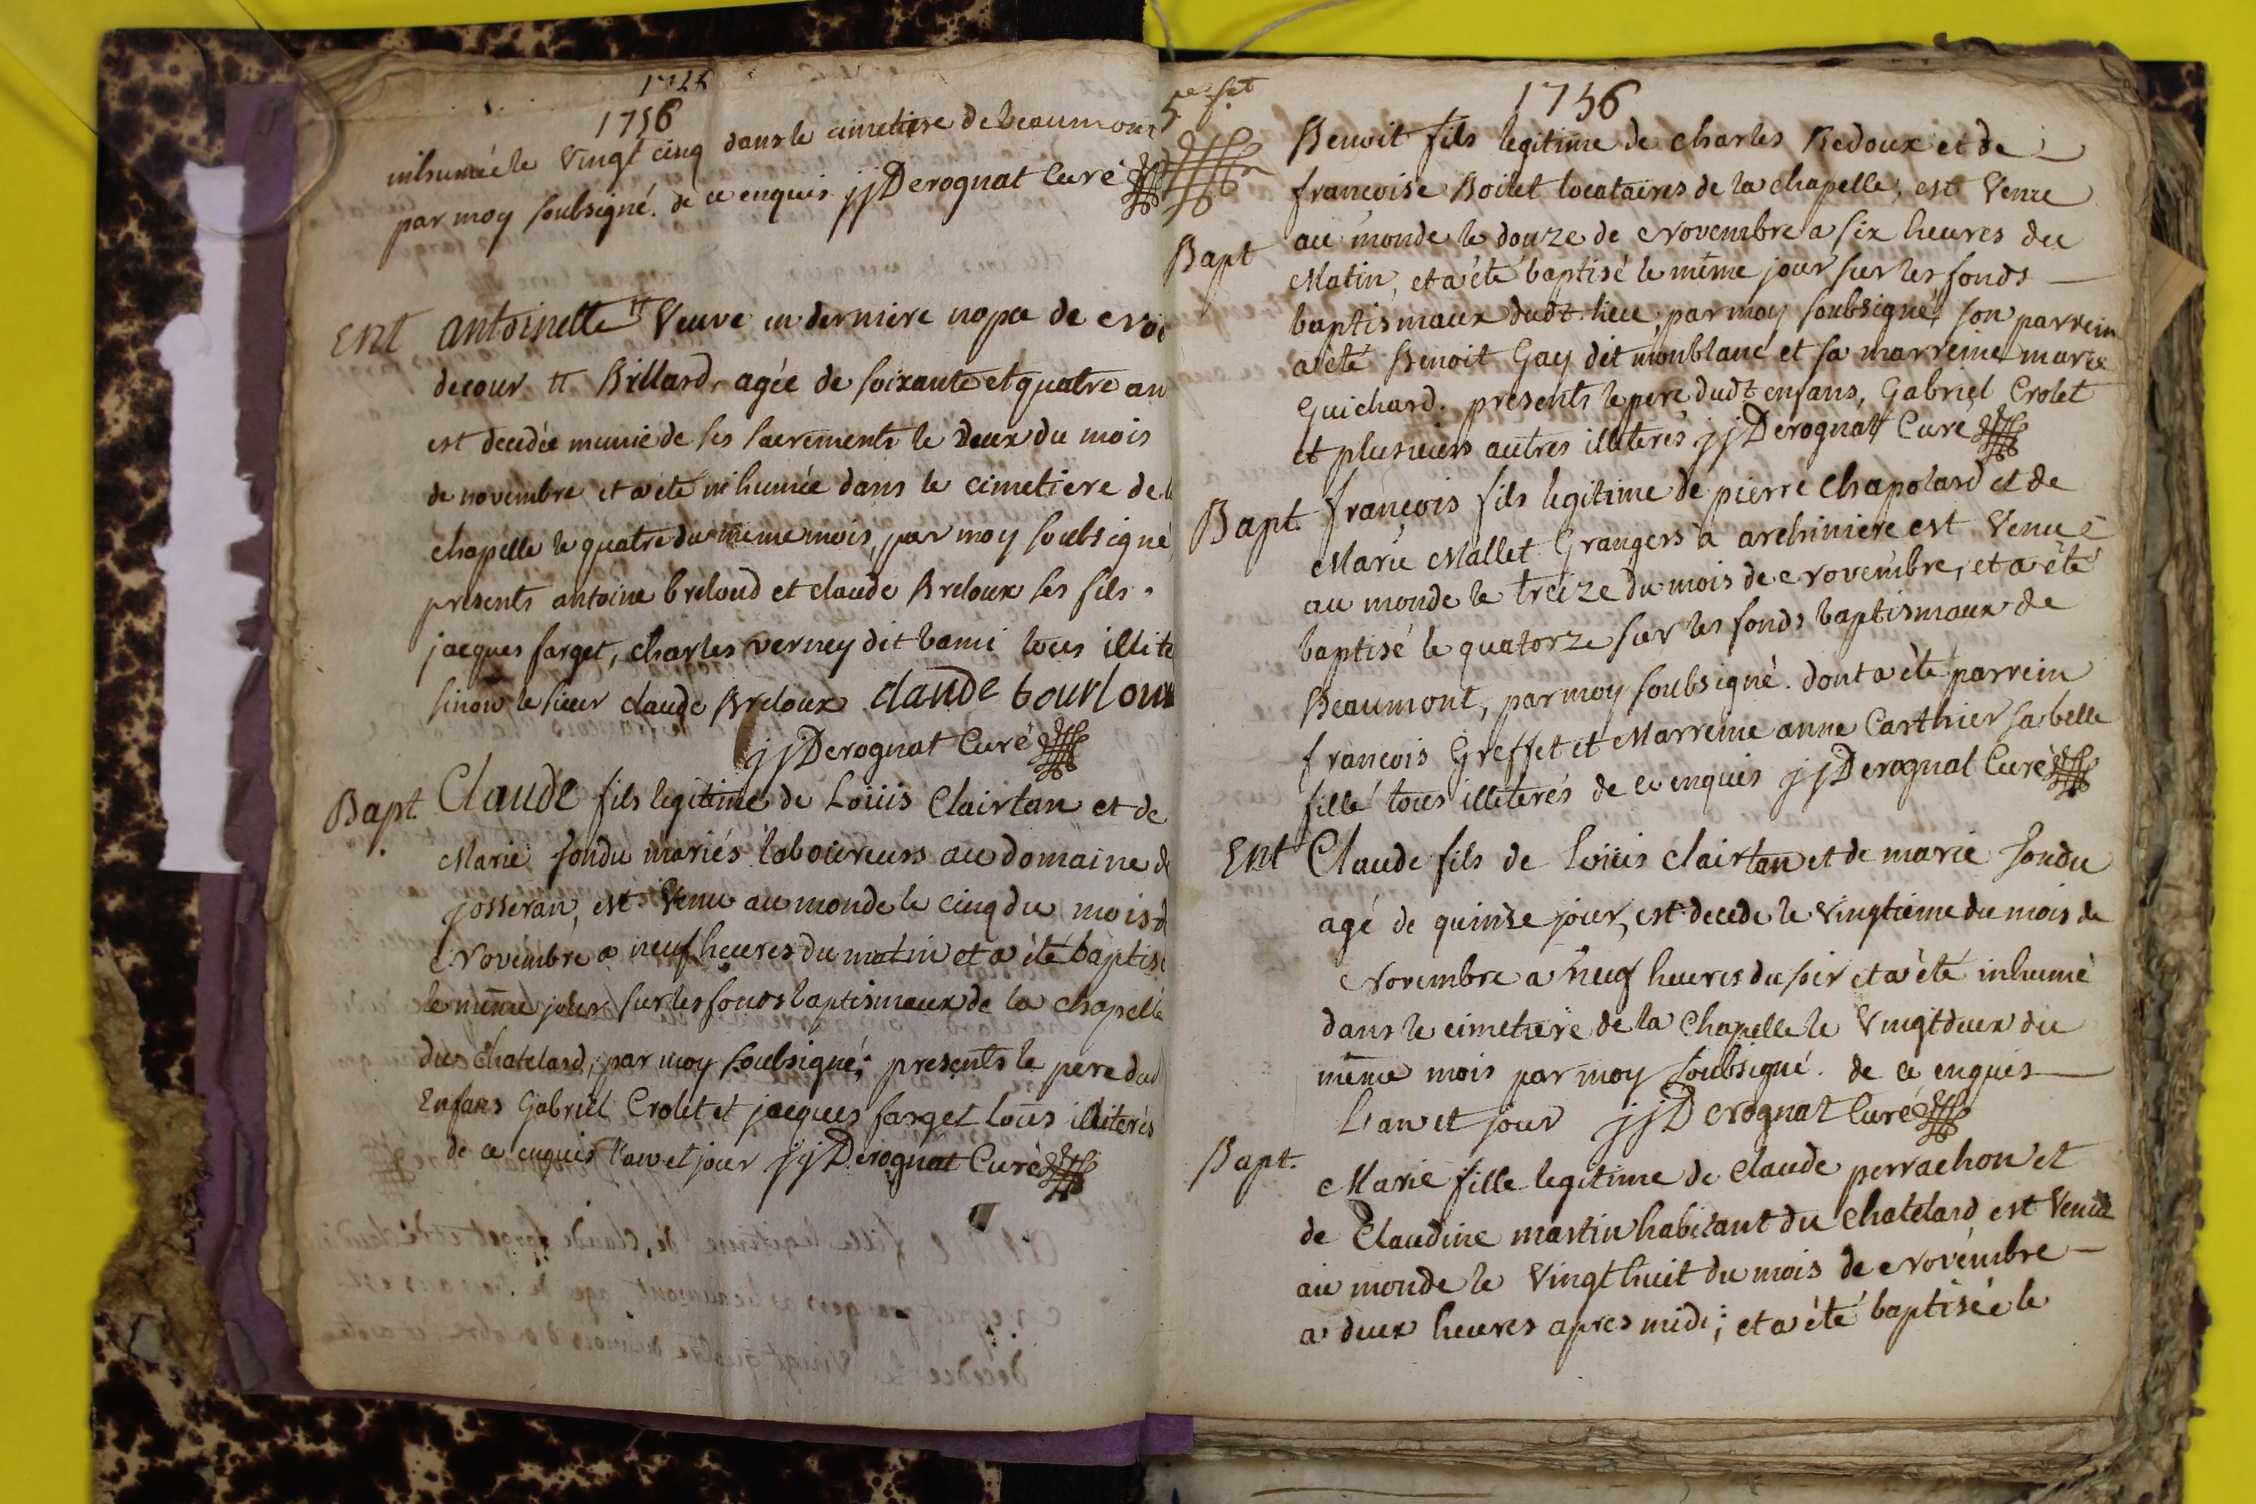 1756
inhumée le Vingt cinq dans le cimetiere de beaumont
par moy soubsigné. de ce enquis jjDerognat Curé
Ent antoinette tt Veuve en derniere nopce de
decour tt Billard, agée de soixante et quatre an
est decedée munie de ses sacrements le Deux du mois
de novembre et a été inhumée dans le cimetiere de
chapelle le quatre du meme mois, par moy soubsigné,
presents antoine breloud et claude Breloux ses fils,
jacques farget, charles verney dit bami tous illite
sinon le sieur claude Breloux claude bourloux
jjDerognat Curé
Bapt. Claude fils legitime de Loüis Clairtan et de
Marie fondu mariés laboureurs au domaine d
josseran, est Venu au monde le cinq du mois d
Novembre a neuf heures du matin et a été baptisé
le même jour sur les fonds baptismaux de la chapelle
du chatelard, par moy soubsigné; presents le pere dud
Enfans Gabriel Crolet et jacques farget tous illiterés
de ce enquis l'an et jour jjDerognat Curé
5e
1756
Benoit fils legitime de charles Redoux et de
francoise Boilet locataires de la chapelle, est Venu
Bapt au monde le douze de Novembre a six heures du
Matin, et a été baptisé le même jour sur les fonds
baptismaux dudt lieu, par moy soubsigné, son parrein
a été Benoit Gay dit monblanc et sa marreine marie
Guichard. presents le pere dudt enfans, Gabriel Crolet
et plusieurs autres illiterés jjDerognat Curé
Bapt. françois fils legitime de pierre Chapolard et de
Marie Mallet Grangers à archiniere est Venu
au monde le treize du mois de Novembre, et a été
baptisé le quatorze sur les fonds baptismaux de
Beaumont, par moy soubsigné. dont a été parrein
francois Greffet et Marreine anne Carthier sa belle
fille tous illiterés de ce enquis jjDerognat Curé
Ent Claude fils de Loüis clairtan et de marie fondu
agé de quinse jour, est decedé le Vingtieme du mois de
Novembre a neuf heures du soir et a été inhumé
dans le cimetiere de la Chapelle le Vingtdeux du
même mois par moy soubsigné. de ce enquis
L'an et jour jjDerognat Curé
Bapt. Marie fille legitime de claude perrachon et
de Claudine martin habitant du chatelard est Venue
au monde le Vingt huit du mois de Novembre
a deux heures apres midi; et a été baptisée le